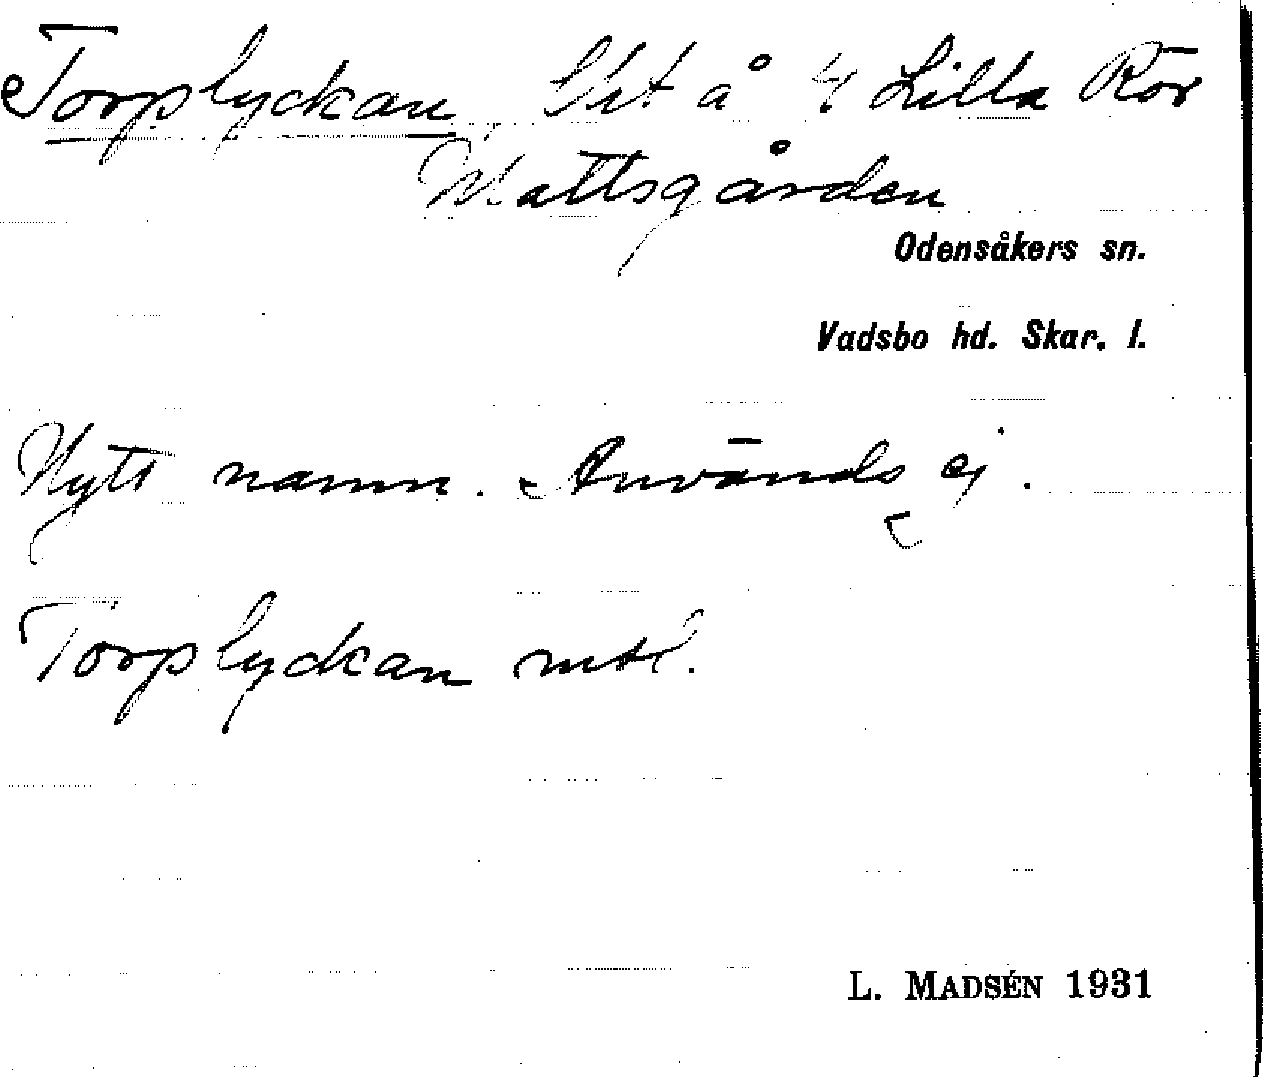 Torplyckan, Lht å 4 Lilla Rör
Mattsgården
Odensåkers sn.
Vadsbo hd. Skar. l.
Nytt namn. Används ej.
Torplyckan mtl.
L. MADSÉN 1931